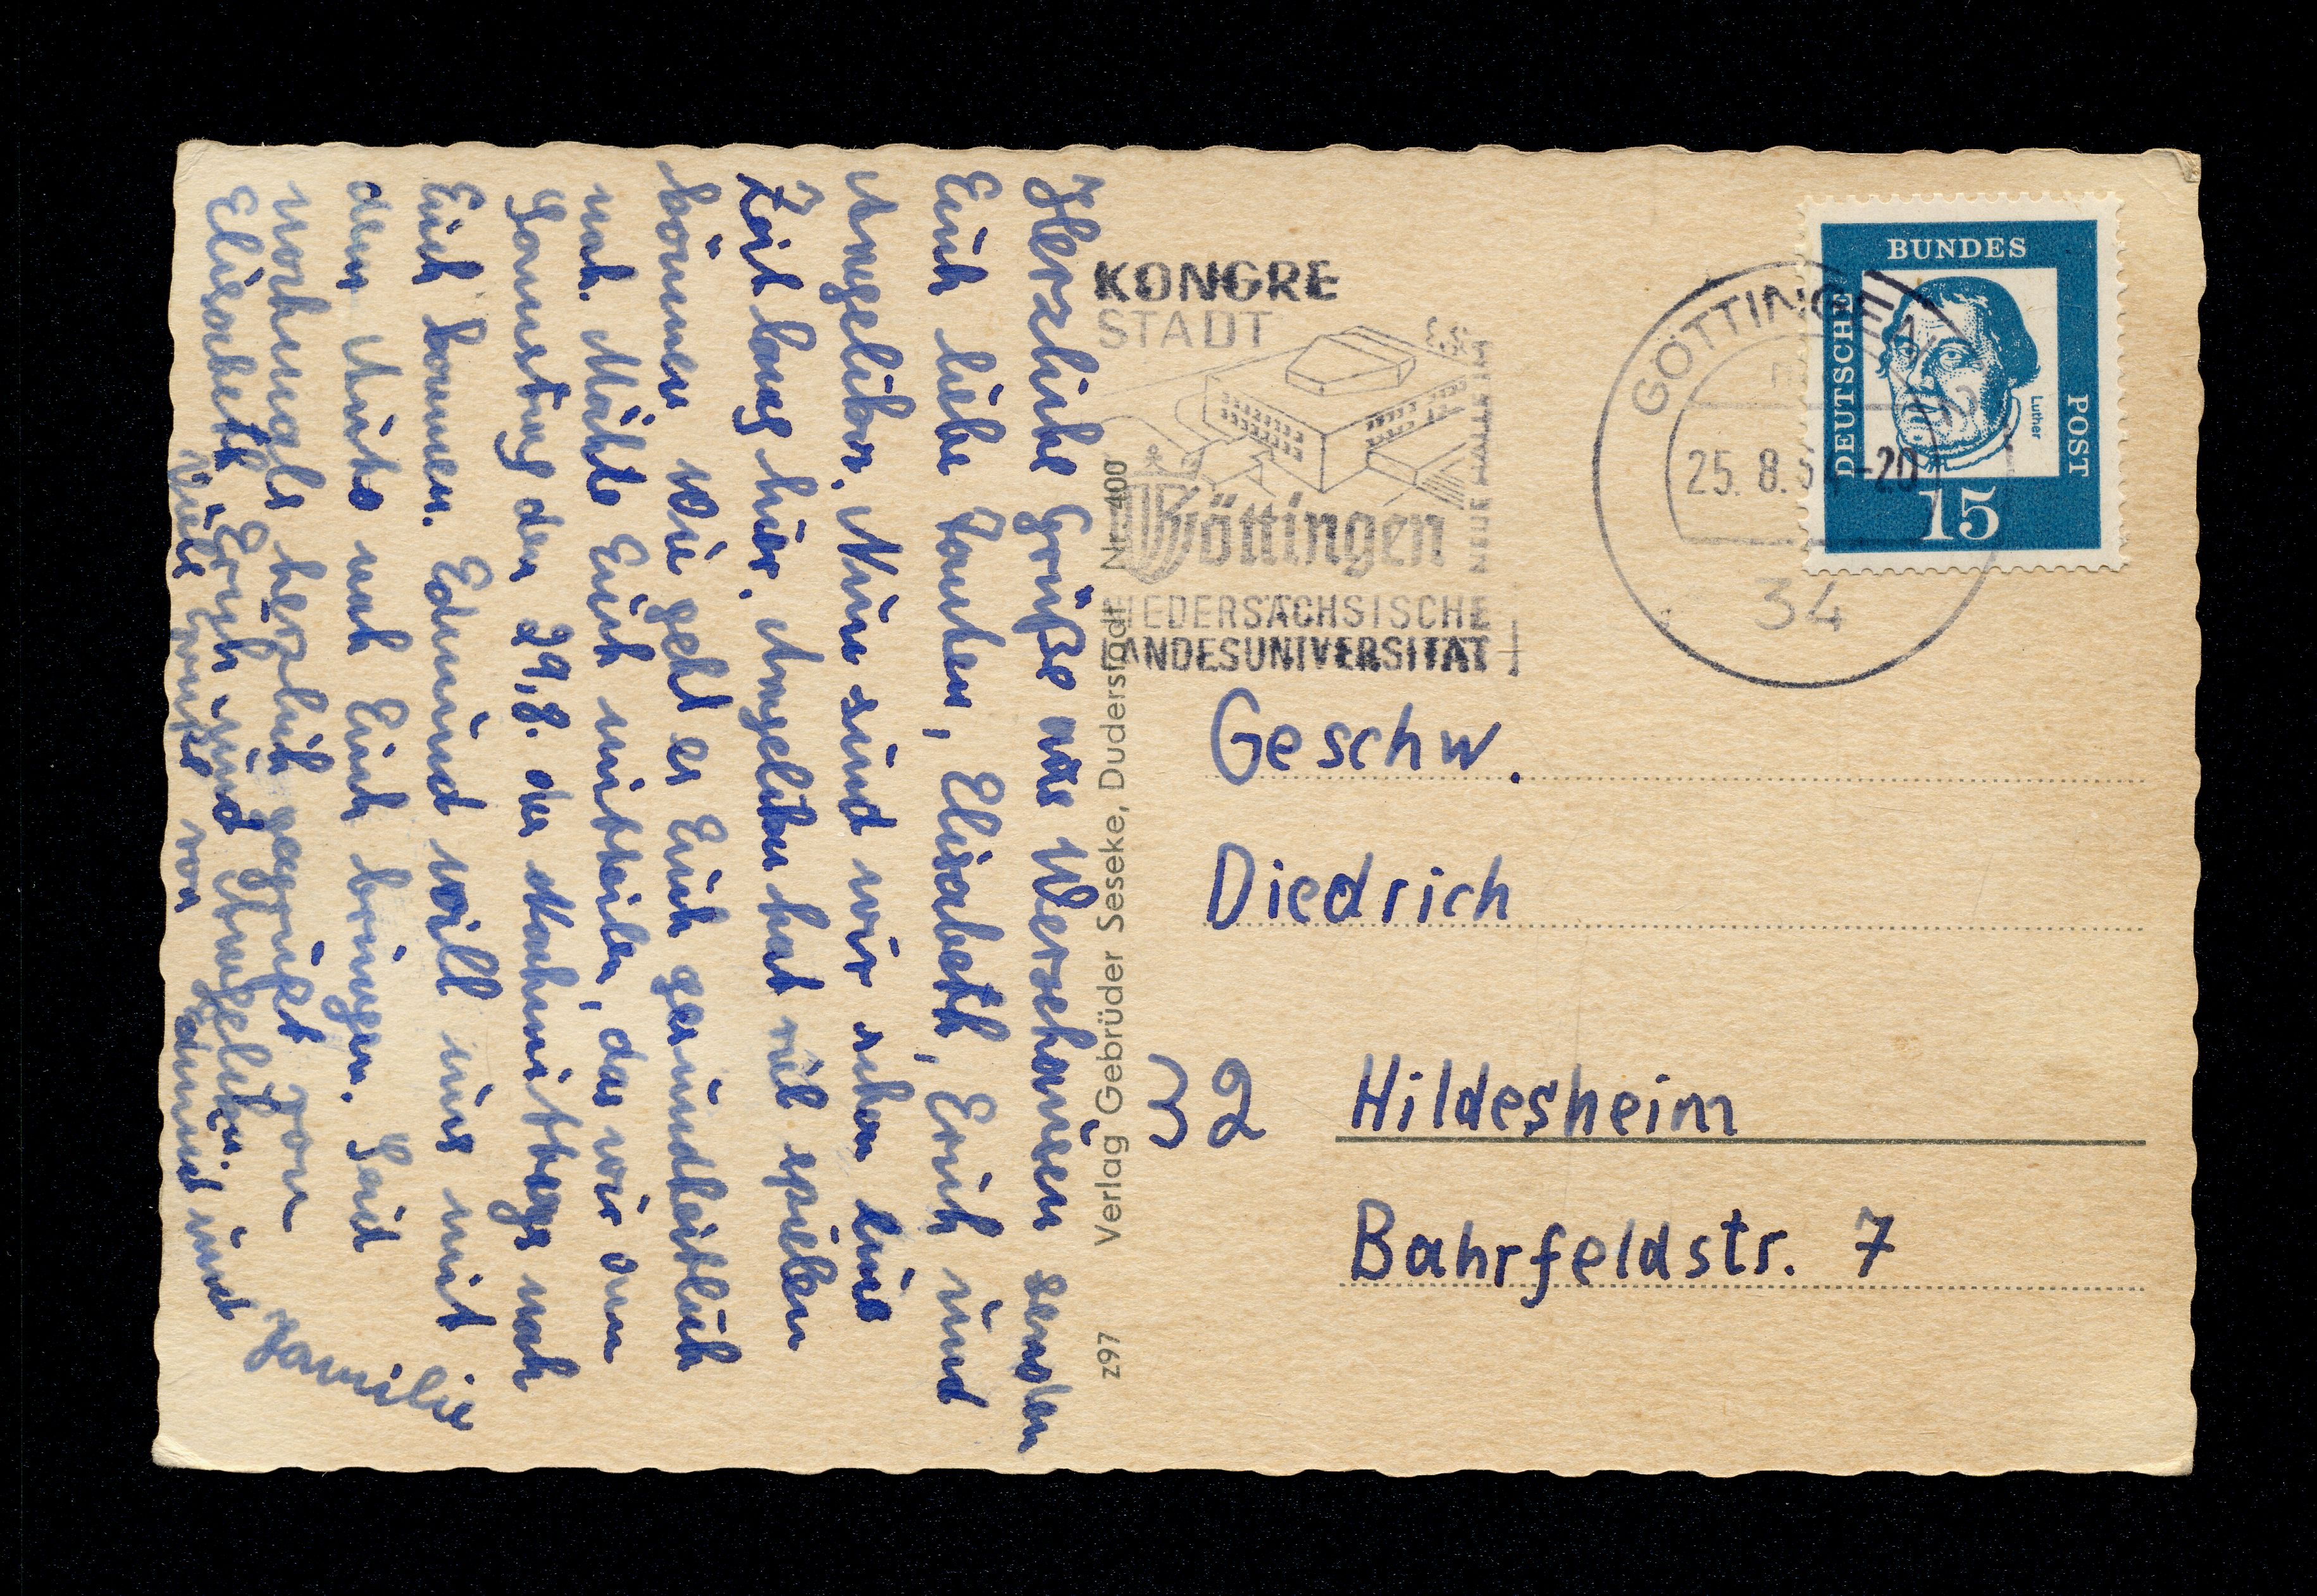 Herzliche Grüße aus Werxhausen senden
Euch liebe Tanten, Elisabeth, Erich und
Angelika. Nun sind wir schon eine
Zeit lang hier. Angelika hat viel spielen
können. Wie geht es Euch gesundheitlich
Möchte Euch mitteilen, das wir am
Samstag den 29.8. des Nachmittags nach
Euch kommen. Edmund will uns mit
dem Auto nach Euch bringen. Seid
nochmals herzlich gegrüßt von
Elisabeth, Erich und Angelika.
Viele Grüße von Edmund und
Familie
Verlag Gebrüder Seseke, Duderstadt Nr. 400
z97
KONGRE
STADT
Göttingen
NIEDERSÄCHSISCHE
LANDESUNIVERSITÄT
GÖTTINGEN
25. 8. -20
34
DEUTSCHE
BUNDES
POST
Luther
15
Geschw.
Diedrich
32 Hildesheim
Bahrfeldstr. 7